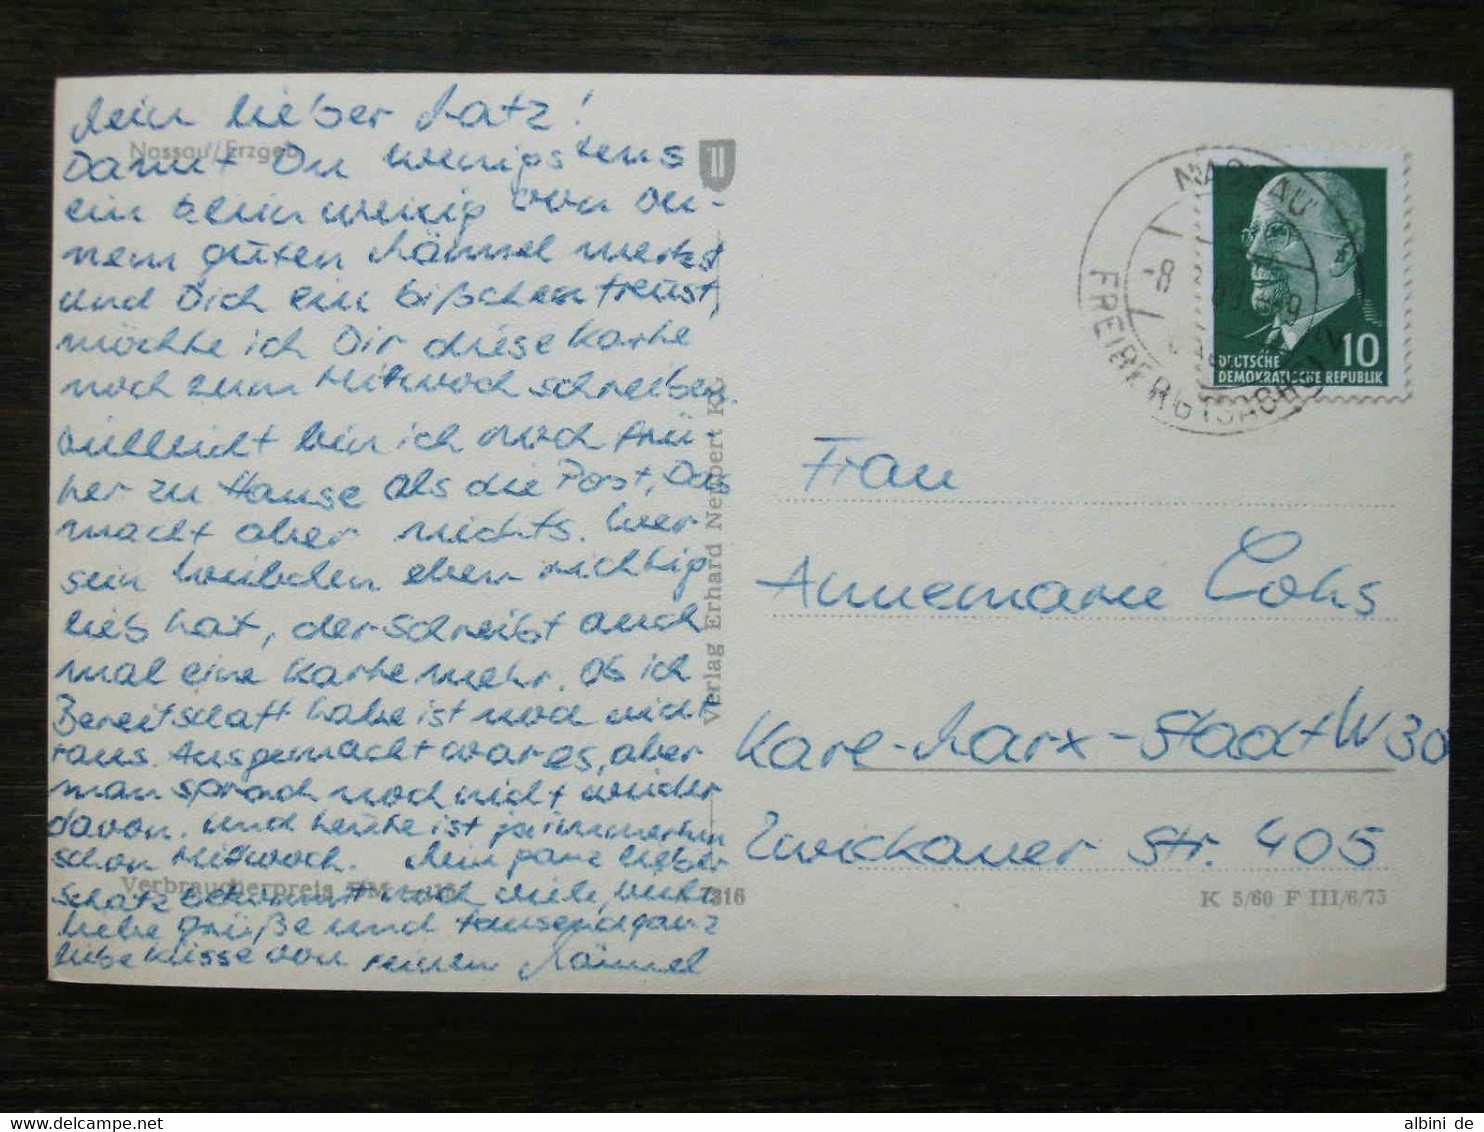 Mein lieber Matz!
Nassau/Erzgeb.
Damit Du wenigstens
ein klein wenig von dei-
nem guten Männel merkst
und Dich ein bißchen freust,
möchte ich Dir diese Karte
noch zum Mittwoch schreiben.
Vielleicht bin ich noch frü-
her zu Hause als die Post, Das
macht aber nichts. Wer
sein Weibchen eben richtig
lieb hat, der schreibt auch
mal eine Karte mehr. Ob ich
Bereitschaft habe ist noch nicht
raus. Ausgemacht war es, aber
man sprach noch nicht wieder
davon. Und heute ist ja immerhin
schon Mittwoch. Mein ganz lieber
Schatz bekommt noch viele, viele
Verbraucherpreis
liebe Grüße und tausend ganz
liebe Küsse von Deinem Männel
Verlag Erhard Neubert K
316
NASSAU
FREIBERG (SACHS) 2
-8
DEUTSCHE
DEMOKRATISCHE REPUBLIK
10
Frau
Annemarie Cohs
Karl-Marx-Stadt W 30
Zwickauer Str. 405
K 5/60 F III/6/73
albini de